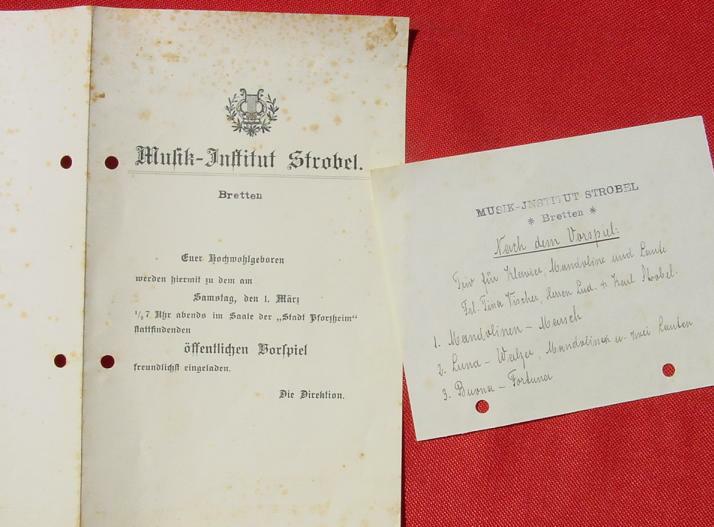 Musik-Institut Strobel.
Bretten
Euer Hochwohlgeboren
werden hiermit zu dem am
Samstag, den 1. März
½7 Uhr abends im Saale der „Stadt Pforzheim“
stattfindenden
öffentlichen Vorspiel
freundlichst eingeladen.
Die Direktion.
MUSIK-JNSTITUT STROBEL
* Bretten *
Nach dem Vorspiel:
für Klavier, Mandoline und Laute
Frl. Tina Vischer, Herren Lud. & Karl Strobel.
1. Mandolinen - Marsch
2. Luna - Walzer, Mandolinen u. zwei Lauten
3. Buona - Fortuna